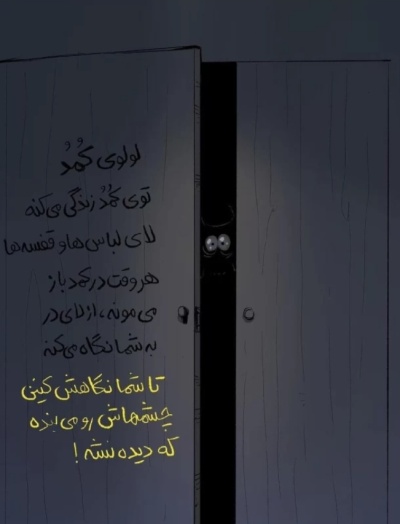 لولوی کُمُد
توی کُمُد زندگی می‌کنه
لای لباس‌ها و قفسه‌ها
هر وقت در کمد باز
می‌مونه، از لای در
به شما نگاه می‌کنه
تا شما نگاهش کینی
چشمهاش رو می‌بنده
که دیده نشه!